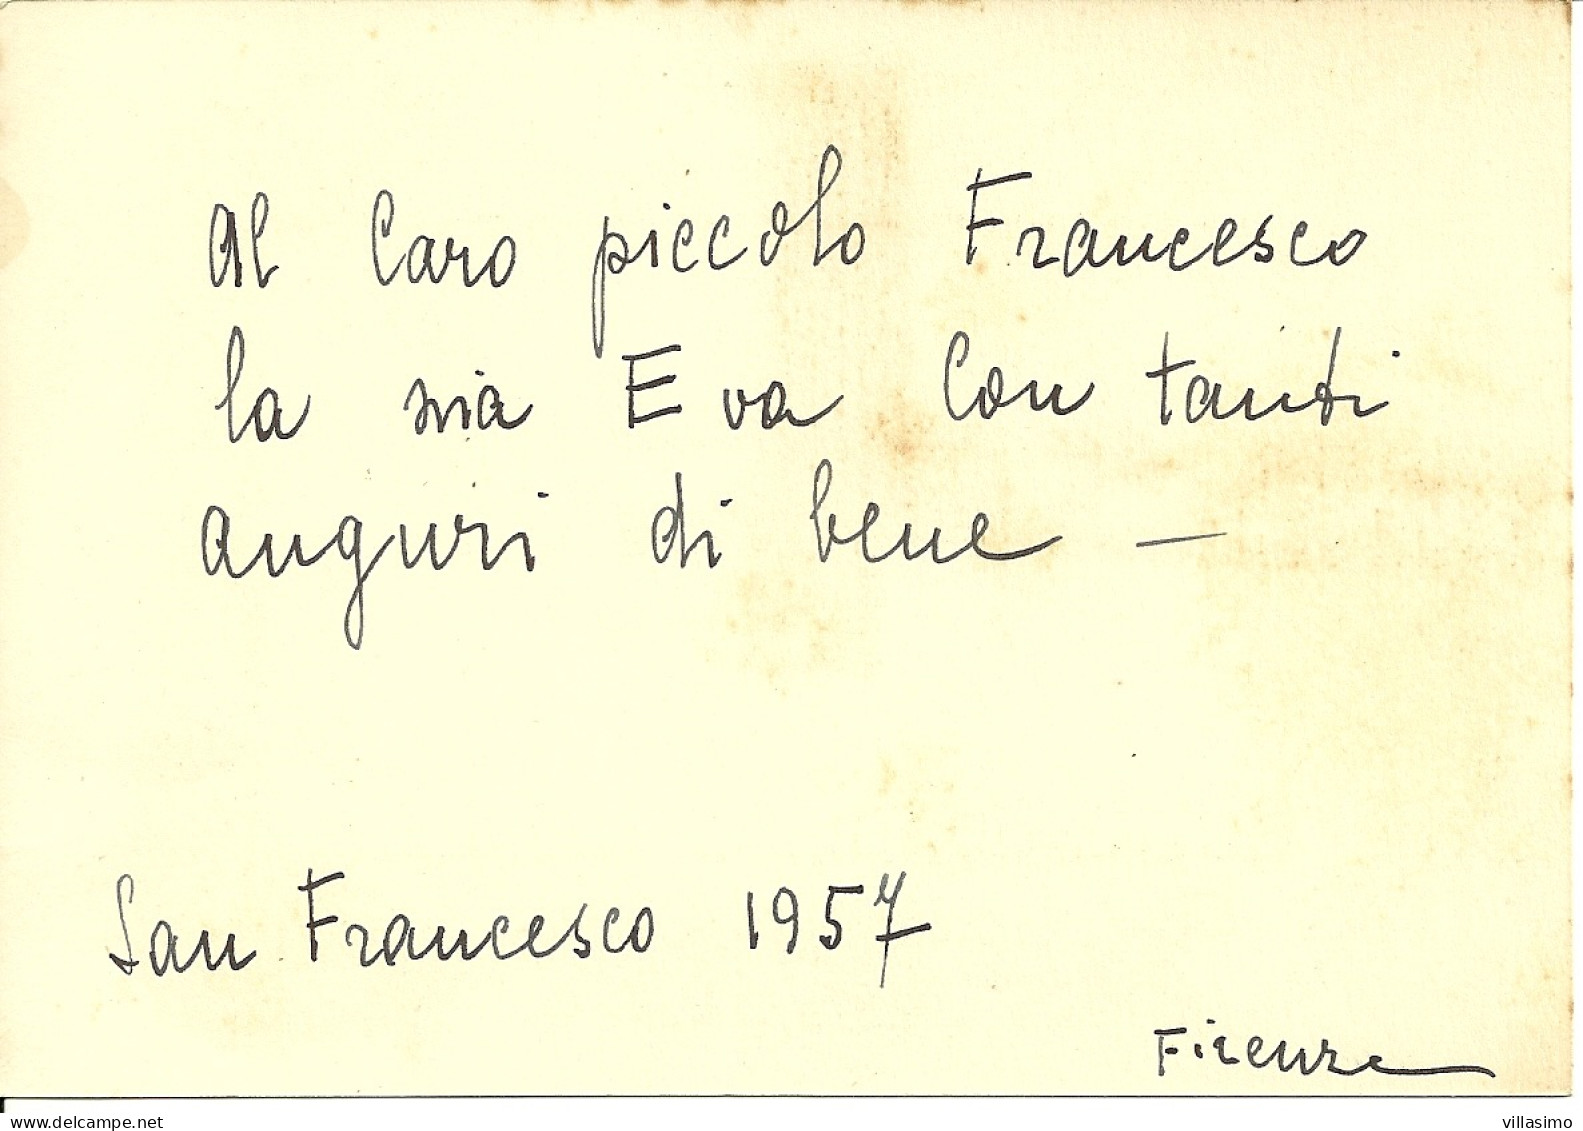 Al Caro piccolo Francesco
la sua Eva con tanti
auguri di bene —
San Francesco 1957
Firenze
www.delcampe.net
villasimo